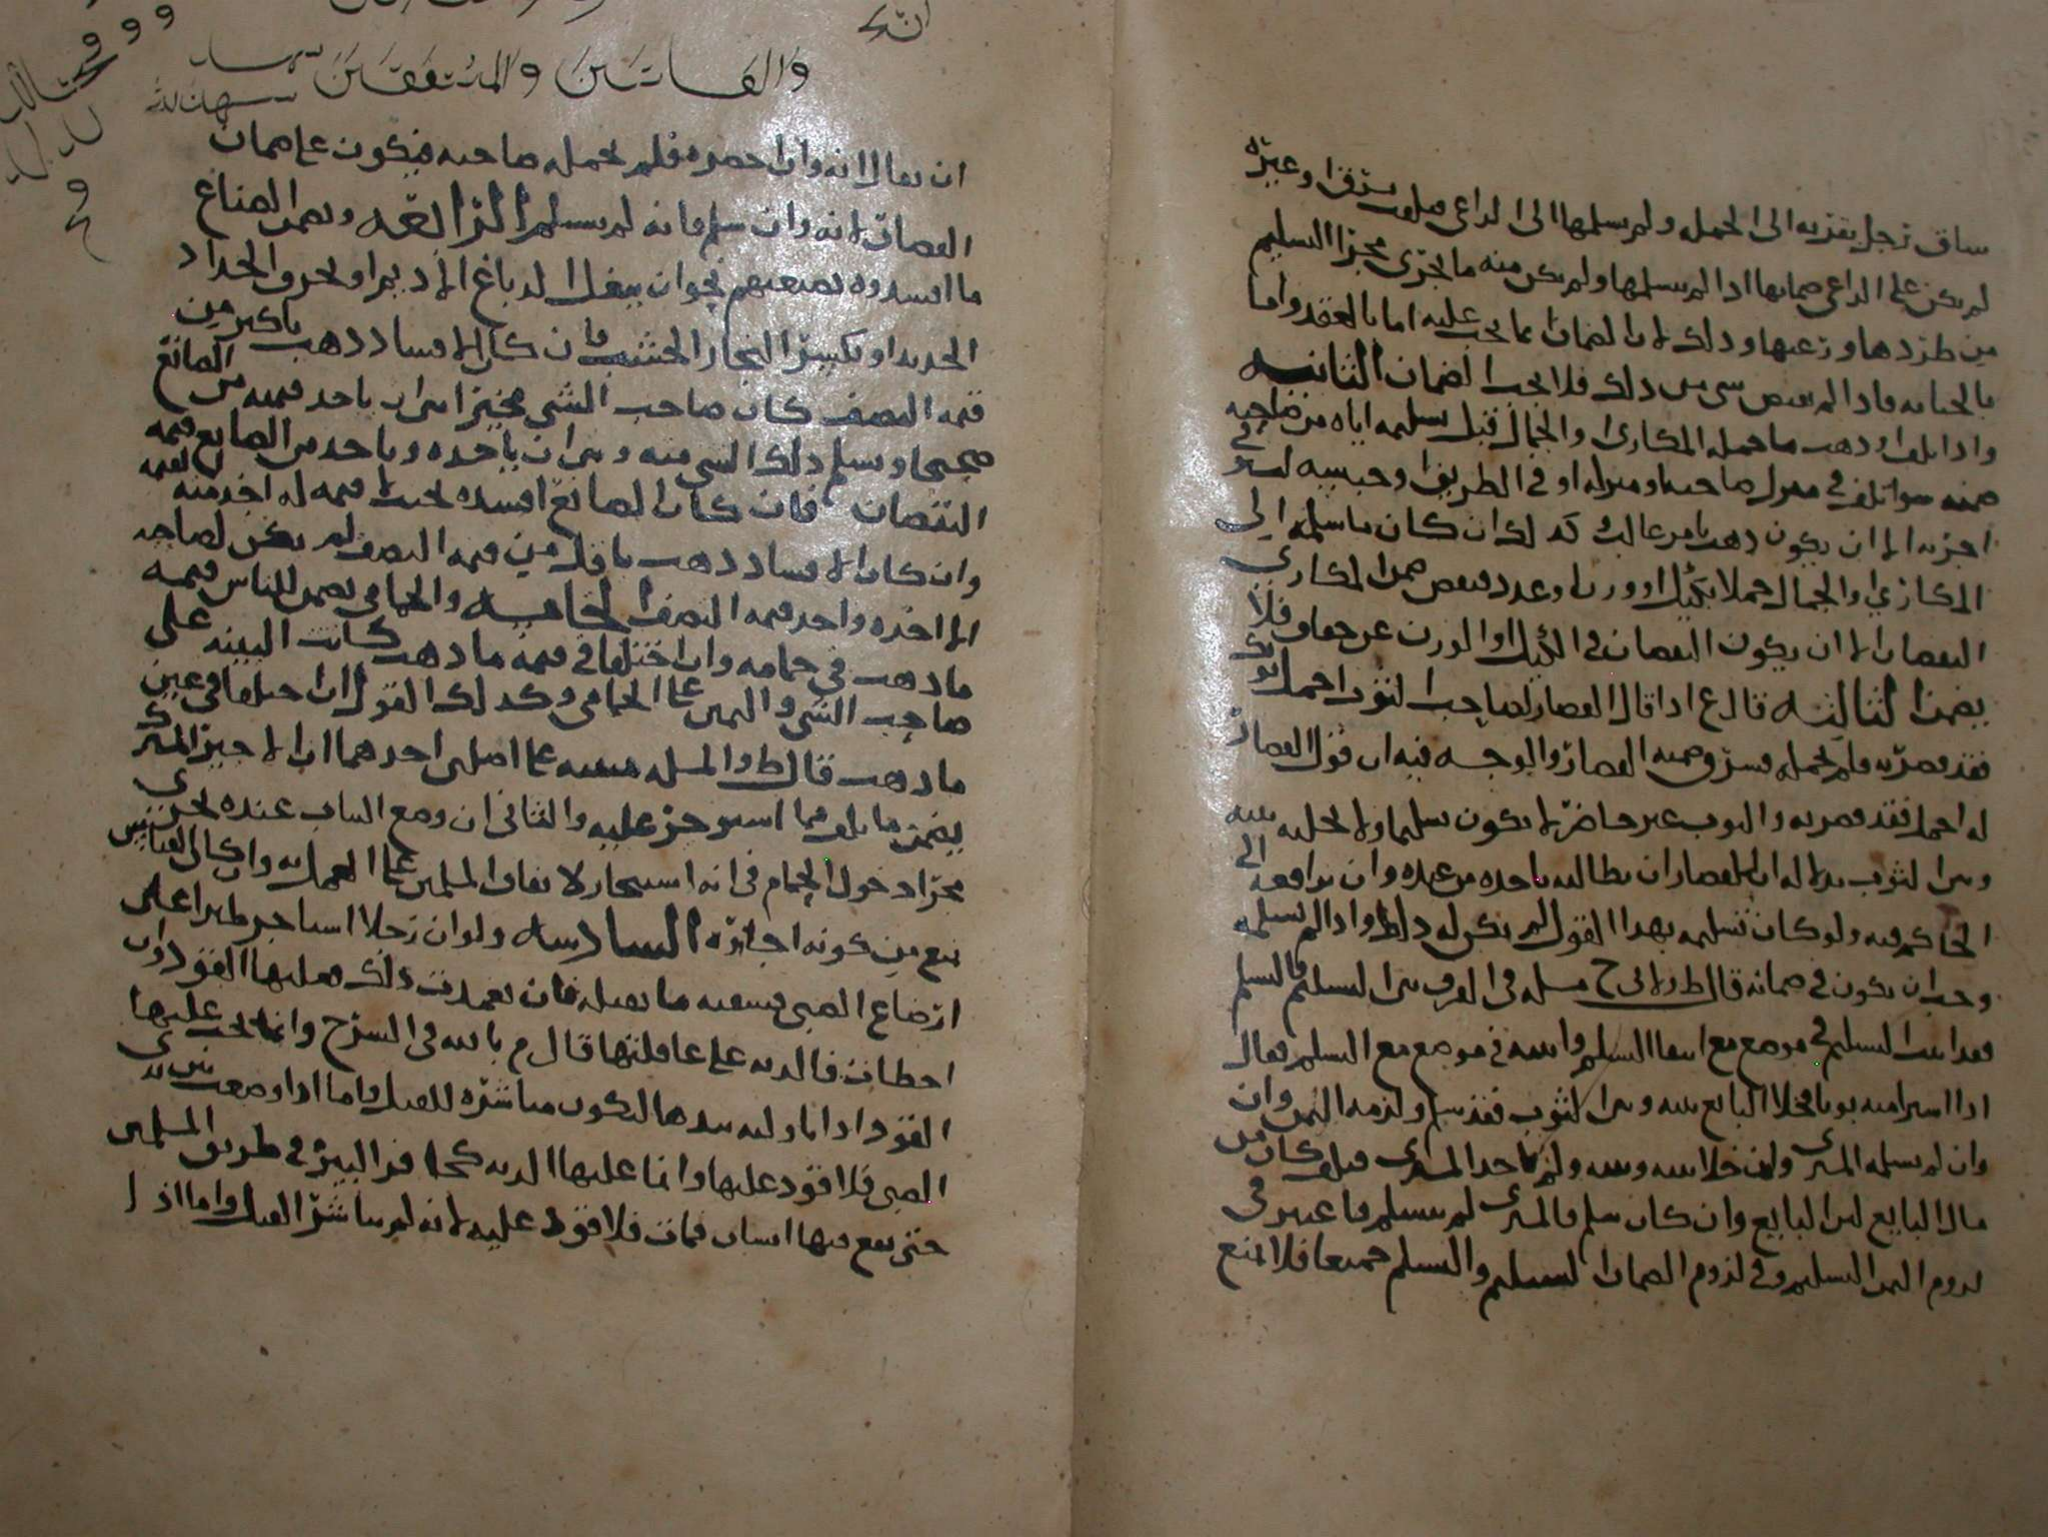 ساق رجل بقره الى الجمله ولم يسلمها الى الراعي فتلفت بسرق او غيره
لم يكن على الراعي ضمانها اذا لم يتسلمها ولم يكن منه ما يجري مجرا التسليم
من طردها او زعبها وذلك لان الضمان انما يجب عليه اما بالعقد واما
بالجنايه فاذا لم يقبض شي من ذلك فلا يجب الضمان الثانيه
واذا تلف او ذهب ما حمله المكاري والجمال قبل تسليمه اياه من صاحبه
ضمنه سوا تلف في منزل صاحبه او منزله او في الطريق او حبسه ليستوفي
اجرته الا ان يكون ذهب بامر غالب كذلك ان كان ما سلمه الى
المكاري او الجمال حملا بكيل او وزن او عدد فنقص ضمن المكاري
النقصان الا ان يكون النقصان في الكيل او الوزن عن جفاف فلا
يضمن الثالثه قال ع اذا قال القصار لصاحب الثوب احمل ثوبك
فقد قصرته فلم يحمله فسرق ضمنه القصار والوجه فيه ان قول القصار
له احمل فقد قصرته والثوب غير حاضر لا يكون تسليما ولا تخليه بينه
وبين الثوب بدلاله ان للقصار ان يطالبه باخذه من عنده وان يرافعه الى
الحاكم فيه ولو كان تسليمه بهذا القول لم يكن له ذلك واذا لم يسلمه
وجب ان يكون في ضمانه قال ط ولابي ح مسله في الفرق بين التسليم والتسلم
فقد اثبت التسليم في موضع مع انتفا التسلم واثبته في موضع مع التسلم فقال
اذا اشترا منه ثوبا فخلا البايع بينه وبين الثوب فقد سلم ولزمه الثمن وان
وان لم يتسلمه المشتري وان خلا بينه وبينه ولم ياخذ المشتري فتلف كان من
مال البايع لان البايع وان كان سلم فالمشتري لم يتسلم فاعتبر في
لزوم الثمن التسليم وفي لزوم الضمان التسليم والتسلم جميعا فلا يمتنع
والقانتين والمنفقين
ان يقال انه وان احضره فلم يحمله صاحبه فيكون على ضمان
القصار لانه وان سلم فانه لم يتسلم الرابعه ويضمن الصناع
ما افسدوه بصنعتهم نحو ان ينغل الدباغ الاديم او يحرق الحداد
الحديد او يكسر النجار الخشب فان كان الافساد ذهب باكثر من
قيمه النصف كان صاحب الشي مخيرا بين ان ياخذ قيمته من الصانع
صحيحا ويسلم ذلك الشي منه وبين ان ياخذه وياخذ من الصانع قيمه
النقصان فان كان الصانع افسده بحيث لا قيمه له اخذ منه
وان كان الافساد ذهب باقل من قيمه النصف لم يكن لصاحبه
الا اخذه واخذ قيمه النصف الخامسه والحمامي يضمن للناس قيمه
ما ذهب في حمامه وان اختلفا في قيمه ما ذهب كانت البينه على
صاحب الشي واليمين على الحمامي وكذلك القول ان اختلفا في عين
ما ذهب قال ط والمسله مبنيه على اصلين احدهما ان الاجير المشترك
يضمن ما تلف فيما استوجر عليه والثاني ان وضع الثياب عنده يجري
مجرا دخول الحمام في انه استيجار لاتفاق المسلمين على العمل به وان كان القياس
يمنع من كونه اجاره السادسه ولو ان رجلا استاجر ظيرا على
ارضاع الصبي فسقته ما يقتله فان تعمدت ذلك فعليها القود وان
اخطات فالديه على عاقلتها قال م بالله في الشرح وانما يجب عليها
القود اذا ناولته بيدها لتكون مباشره للقتل واما اذا وضعت بين يدي
الصبي فلا قود عليها وانما عليها الديه كحافر البير في طريق المسلمين
حتى يقع فيها انسان فمات فلا قود عليه لانه لم يباشر القتل واما اذا